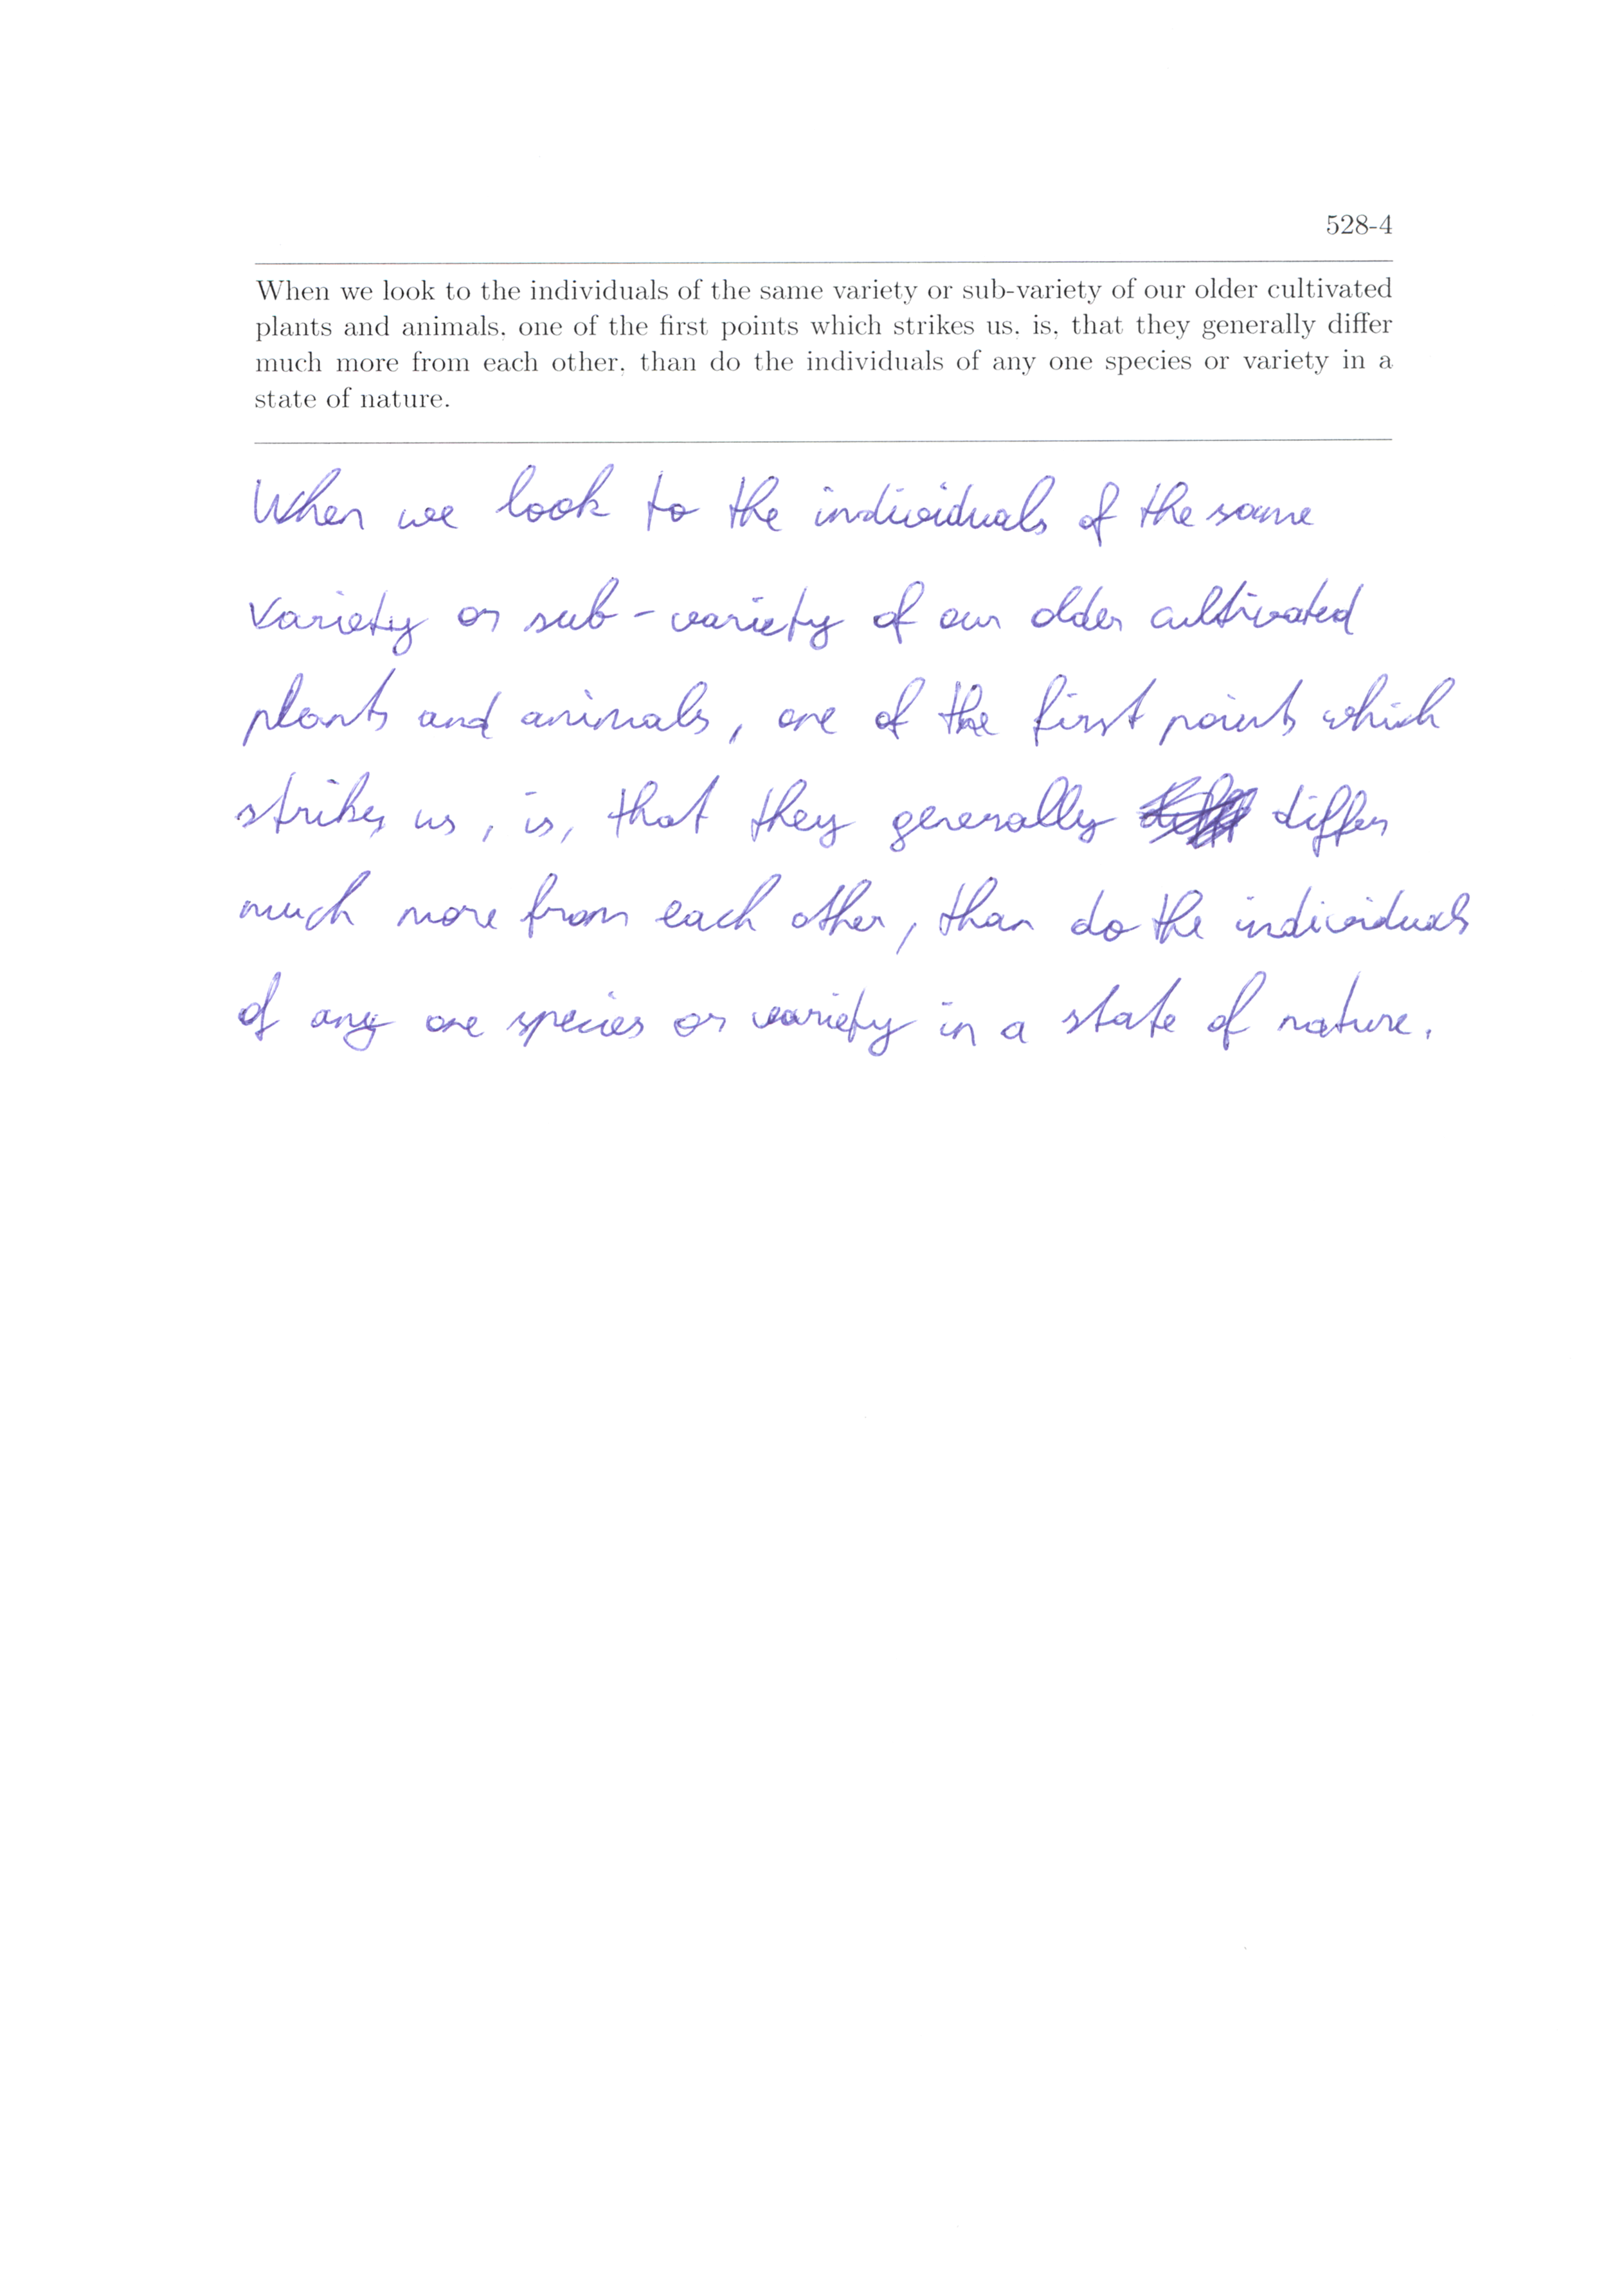 528-4
When we look to the individuals of the same variety or sub-variety of our older cultivated
plants and animals, one of the first points which strikes us, is, that they generally differ
much more from each other, than do the individuals of any one species or variety in a
state of nature.
When we look to the individuals of the same
variety or sub-variety of our older cultivated
plants and animals, one of the first points which
strikes us, is, that they generally differ
much more from each other, than do the individuals
of any one species or variety in a state of nature.